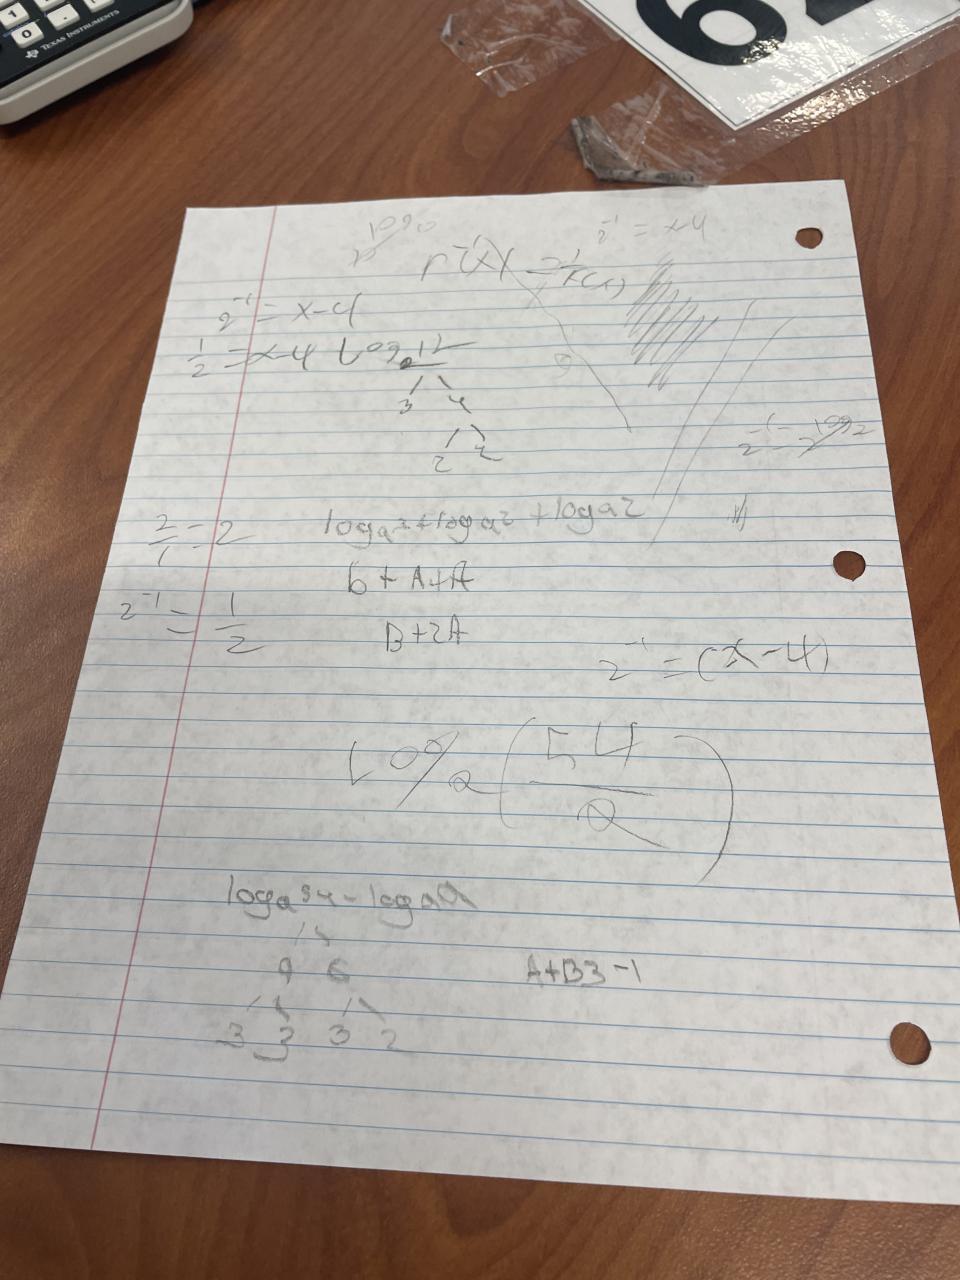 1
0
TEXAS INSTRUMENTS
6
logo
2⁻¹ = x-4
2⁻¹ = x-4
1/2 = x-4 Log 12
3 4
2 2
2/1 = 2
logₐ3 + logₐ2 + logₐ2
b + A + A
2⁻¹ = 1/2
B + 2A
2⁻¹ = (x-4)
logₐ(54/a)
logₐ54 - logₐa
9 6
A+B3-1
3 3 3 2